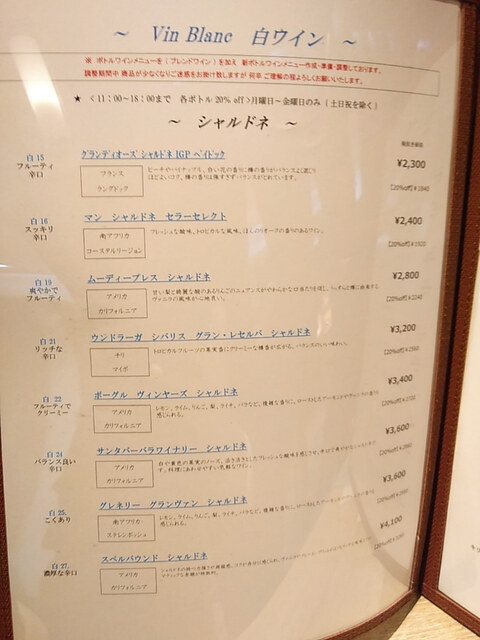 ~ Vin Blanc 白ワイン ~
※ ボトルワインメニューを（ブレンドワイン）を加え 新ボトルワインメニュー作成・準備・調整しております。
調整期間中 商品が少なくなりご迷惑をお掛け致しますが 何卒 ご理解の程よろしくお願いいたします。
★ ＜11：00～18：00まで 各ボトル 20% off＞月曜日～金曜日のみ（土日祝を除く）
～ シャルドネ ～
白 15
フルーティ
辛口
グランディオーズ シャルドネ IGP ペイドック
フランス
ラングドック
¥2,300
【20%off】¥1840
白 16
スッキリ
辛口
マン シャルドネ セラーセレクト
南アフリカ
コースタルリージョン
フレッシュな酸味、トロピカルな風味。ほんのりオークの香りのあるワイン。
¥2,400
【20%off】¥1920
白 19
爽やかで
フルーティ
ムーディープレス シャルドネ
アメリカ
カリフォルニア
¥2,800
【20%off】¥2240
白 21
リッチな
辛口
ウンドラーガ シバリス グラン・レセルバ シャルドネ
チリ
マイポ
トロピカルフルーツの果実香にクリーミーな樽香が広がる。バランスのいい味わい。
¥3,200
【20%off】¥2560
白 22
フルーティで
クリーミー
ボーグル ヴィンヤーズ シャルドネ
アメリカ
カリフォルニア
¥3,400
白 24
バランス良い
辛口
サンタバーバラワイナリー シャルドネ
アメリカ
カリフォルニア
¥3,600
白 25
こくあり
グレネリー グランヴァン シャルドネ
南アフリカ
ステレンボッシュ
¥3,600
白 27
濃厚な辛口
スペルバウンド シャルドネ
アメリカ
カリフォルニア
¥4,100